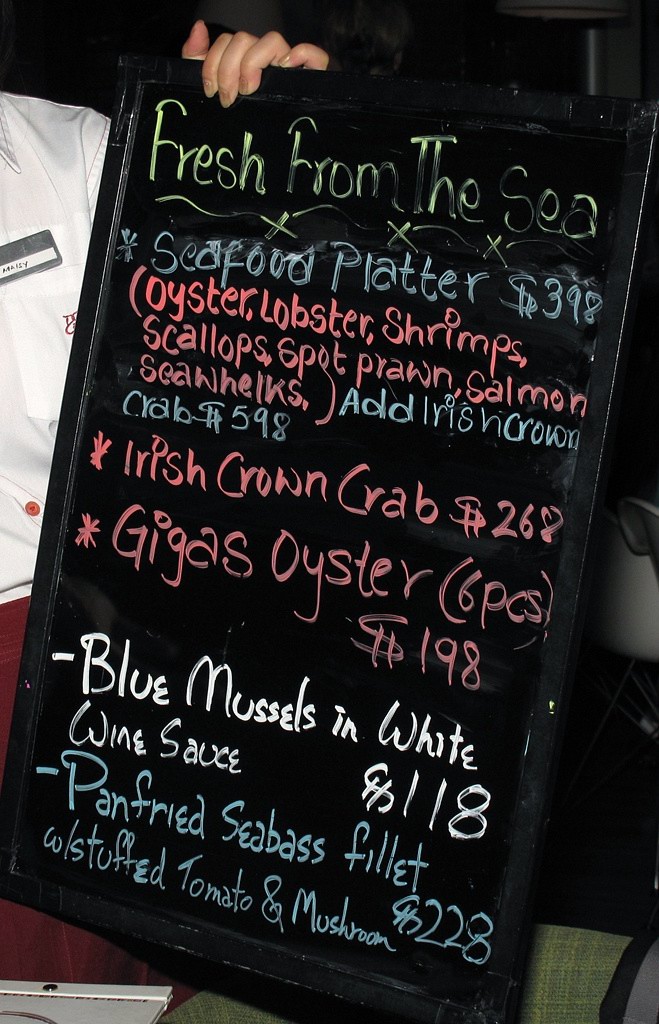 Fresh From The Sea
* Seafood Platter $398
(Oyster, Lobster, Shrimps,
Scallops, Spot prawn, Salmon
Seawhelks,) Add Irish crown
Crab $598
* Irish Crown Crab $268
* Gigas Oyster (6pcs)
$198
- Blue Mussels in White
Wine Sauce $118
- Panfried Seabass fillet
w/stuffed Tomato & Mushroom $228